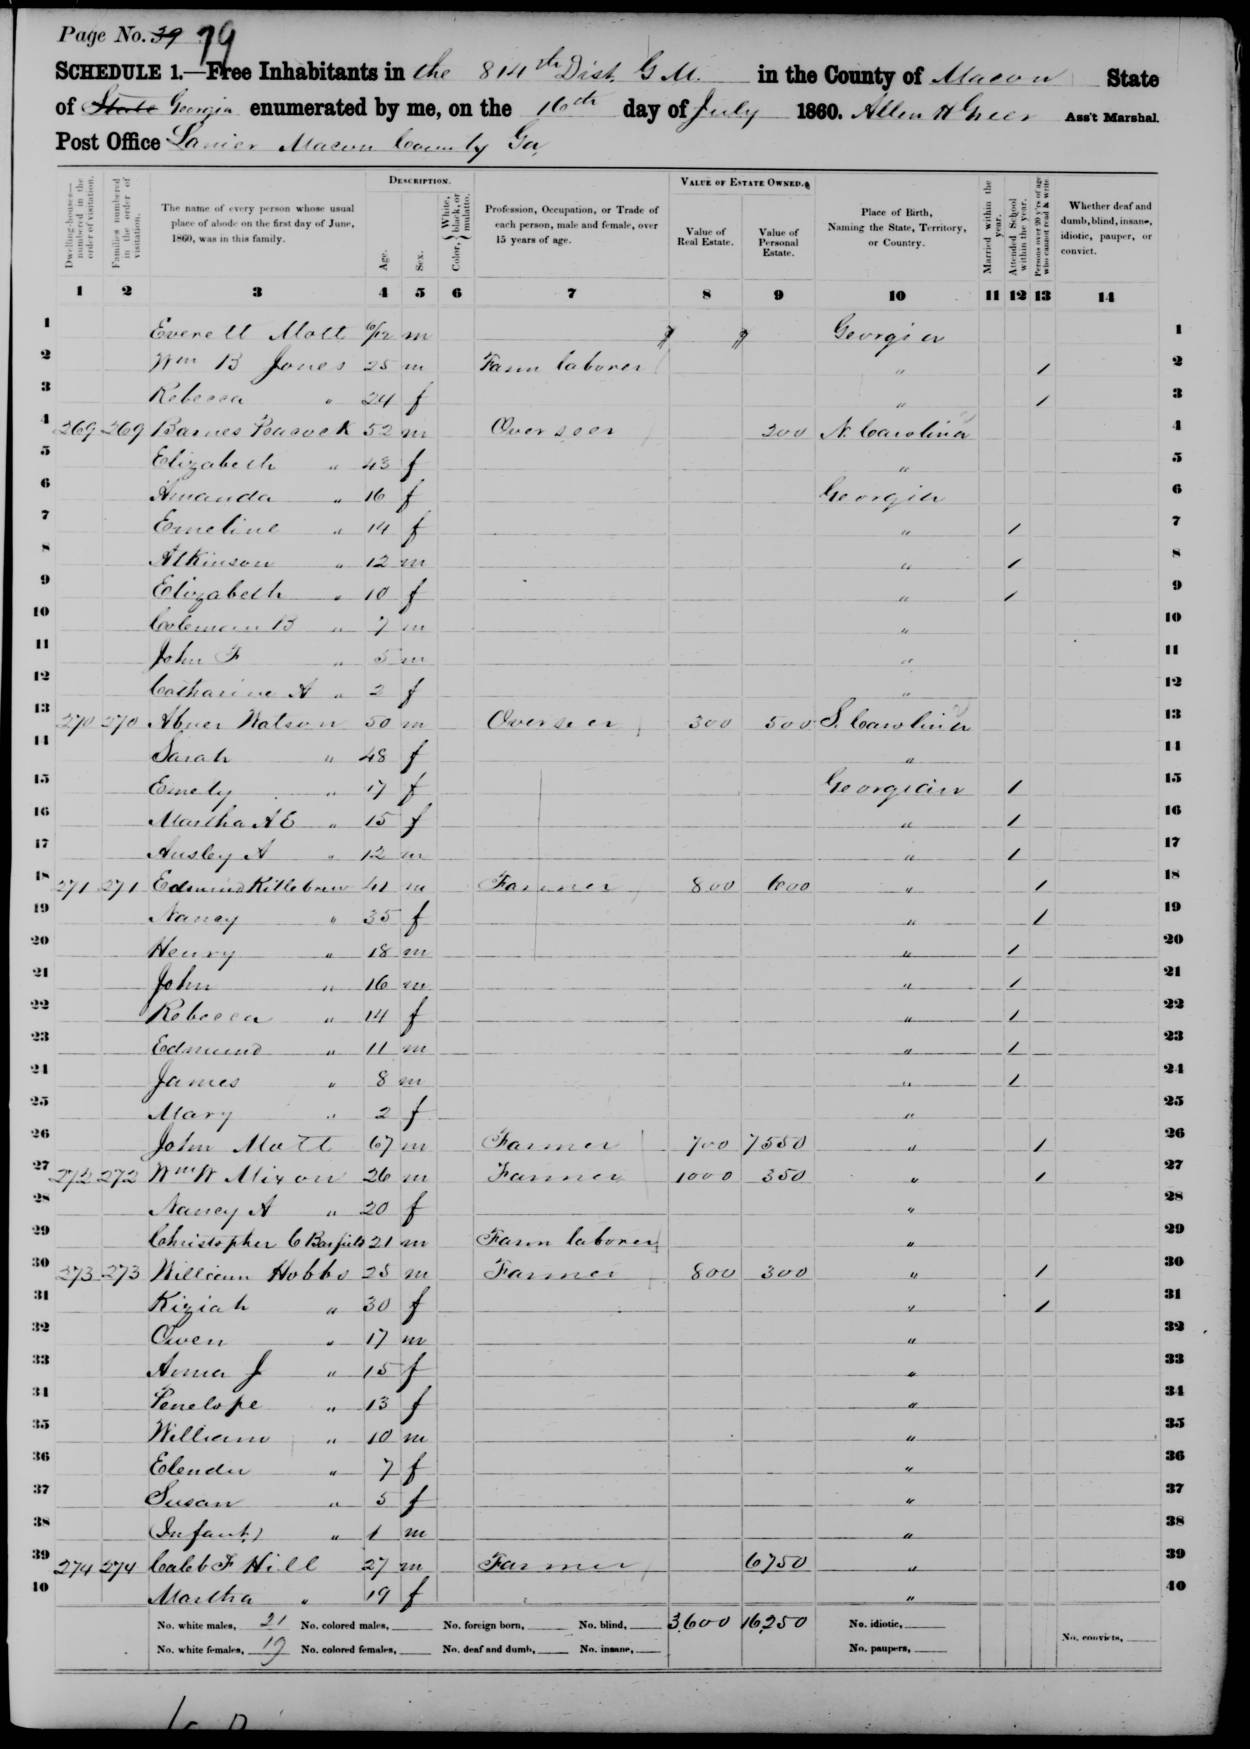 Page No. 39 79
SCHEDULE 1.—Free Inhabitants in the 814th Dist G M. in the County of Macon State
of State Georgia enumerated by me, on the 16th day of July 1860. Allen H Greer Ass't Marshal.
Post Office Lanier Macon County Ga,
DESCRIPTION. VALUE OF ESTATE OWNED.
Dwelling-houses—numbered in the order of visitation.
Families numbered in the order of visitation.
The name of every person whose usual place of abode on the first day of June, 1860, was in this family.
Age.
Sex.
Color, White, black, or mulatto.
Profession, Occupation, or Trade of each person, male and female, over 15 years of age.
Value of Real Estate.
Value of Personal Estate.
Place of Birth, Naming the State, Territory, or Country.
Married within the year.
Attended School within the year.
Persons over 20 y'rs of age who cannot read & write.
Whether deaf and dumb, blind, insane, idiotic, pauper, or convict.
1 2 3 4 5 6 7 8 9 10 11 12 13 14
1 Everett Mott 6/12 m Georgia 1
2 Wm B Jones 25 m Farm laborer " / 2
3 Rebecca " 24 f " / 3
4 269 269 Barnes Peacock 52 m Overseer 200 N. Carolina 4
5 Elizabeth " 43 f " 5
6 Amanda " 16 f Georgia 6
7 Emeline " 14 f " / 7
8 Atkinson " 12 m " / 8
9 Elizabeth " 10 f " / 9
10 Coleman B " 7 m " 10
11 John F " 5 m " 11
12 Catharine A " 2 f " 12
13 270 270 Abner Watson 50 m Overseer 300 500 S. Carolina 13
14 Sarah " 48 f " 14
15 Emely " 17 f Georgian / 15
16 Martha A E " 15 f " / 16
17 Ansley A " 12 m " / 17
18 271 271 Edmund Kitlebrew 41 m Farmer 800 600 " / 18
19 Nancy " 35 f " / 19
20 Henry " 18 m " / 20
21 John " 16 m " / 21
22 Rebecca " 14 f " / 22
23 Edmund " 11 m " / 23
24 James " 8 m " / 24
25 Mary " 2 f " 25
26 John Mott 67 m Farmer 700 7550 " / 26
27 272 272 Wm W Mixon 26 m Farmer 1000 350 " / 27
28 Nancy A " 20 f " 28
29 Christopher C Barfield 21 m Farm laborer " 29
30 273 273 William Hobbs 28 m Farmer 800 300 " / 30
31 Kiziah " 30 f " / 31
32 Owen " 17 m " 32
33 Anna J " 15 f " 33
34 Penelope " 13 f " 34
35 William " 10 m " 35
36 Elender " 7 f " 36
37 Susan " 5 f " 37
38 (Infant) " 1 m " 38
39 274 274 Caleb F Hill 27 m Farmer 6750 " 39
40 Martha " 19 f " 40
No. white males, 21 No. colored males, No. foreign born, No. blind, 3,600 16,250 No. idiotic,
No. white females, 19 No. colored females, No. deaf and dumb, No. insane, No. paupers, No. convicts,